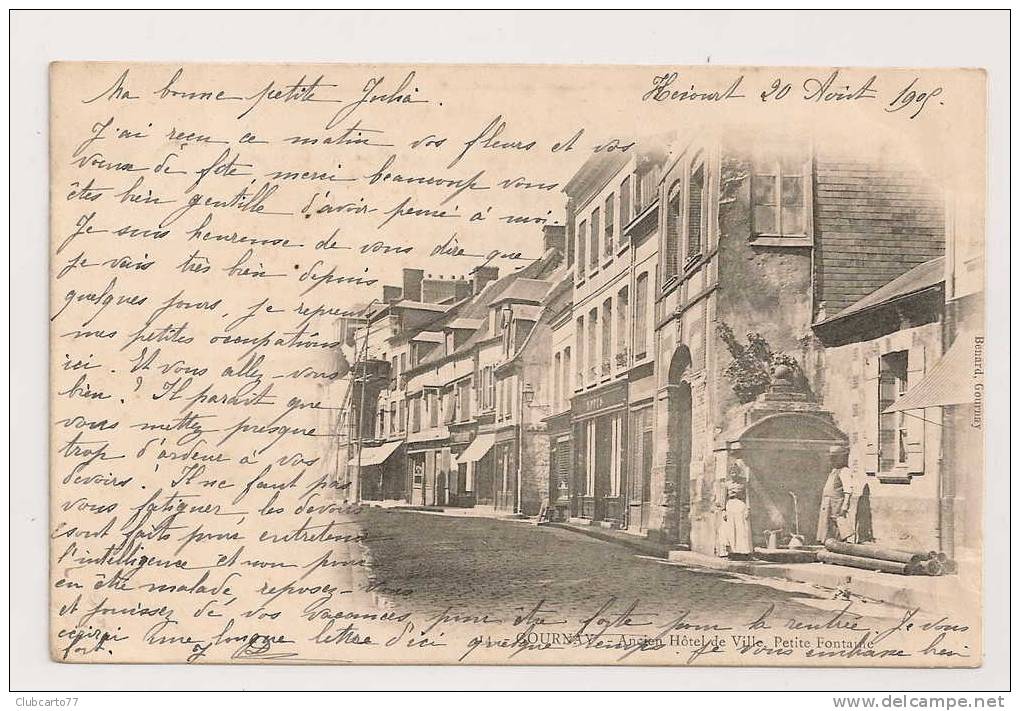 Ma bonne petite Julia.
Hécourt 20 Août 1905.
J'ai reçu ce matin vos fleurs et vos
voeux de fête, merci beaucoup vous
êtes bien gentille d'avoir pensé à moi.
Je suis heureuse de vous dire que
je vais très bien depuis
quelques jours, je reprends
mes petites occupations
ici. Et vous allez-vous
bien? Il parait que
vous mettez presque
trop d'ardeur à vos
devoirs. Il ne faut pas
vous fatiguer, les devoirs
sont faits pour entretenir
l'intelligence et non pour
en être malade, reposez-vous
et jouissez de vos vacances pour être forte pour la rentrée. Je vous
écrirai une longue lettre d'ici quelque temps. Je vous embrasse bien
fort.
GOURNAY. - Ancien Hôtel de Ville, Petite Fontaine
Bénard, Gournay
Clubcarto77
www.delcampe.net